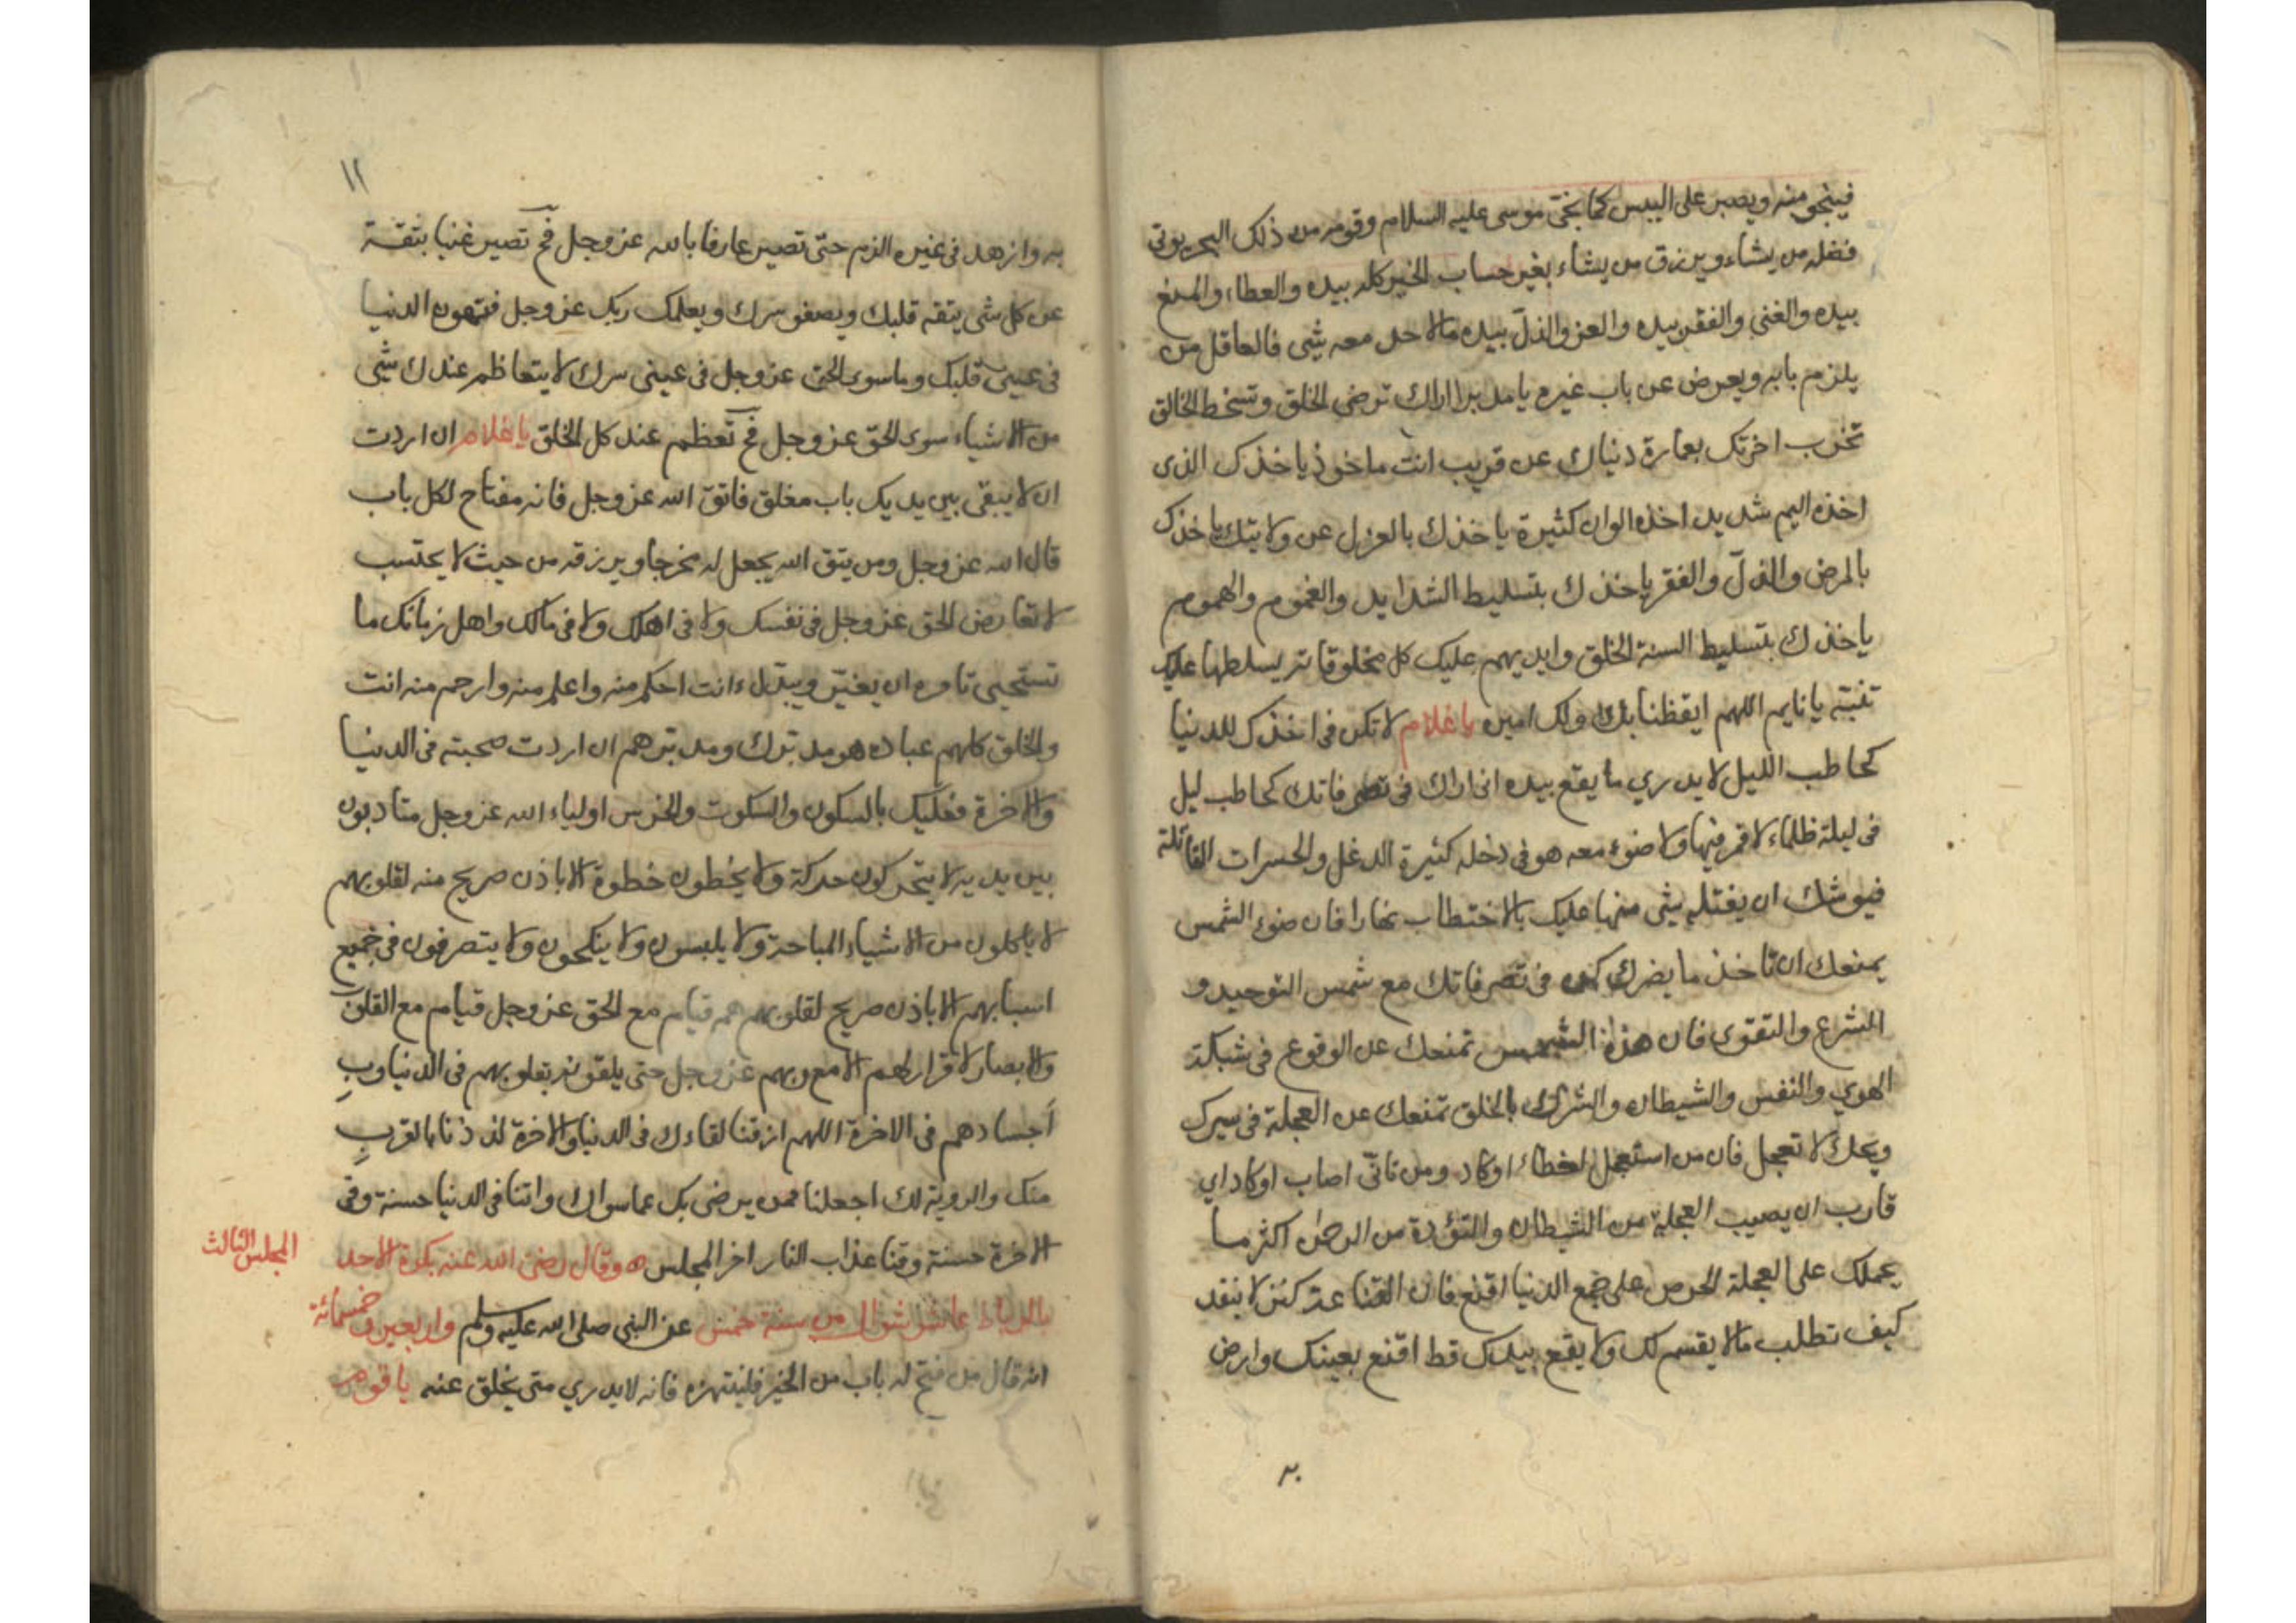 فينجو منه ويصبر على اليبس كما نجّى موسى عليه السلام وقومه من ذلك البحر يوتى
فضله من يشاء ويرزق من يشاء بغير حساب الخير كله بيده والعطاء والمنع
بيده والغنى والفقر بيده والعز والذلّ بيده ما لاحد معه شى فالعاقل من
يلزم بابه ويعرض عن باب غيره يا مدبرا اراك ترضى الخلق وتسخط الخالق
تخرب اخرتك بعمارة دنياك عن قريب انت ماخوذ ياخذك الذى
اخذه اليم شديد اخذه الوان كثيرة ياخذك بالعزل عن ولايتك ياخذك
بالمرض والذلّ والفقر ياخذك بتسليط الشدايد والغموم والهموم
ياخذك بتسليط السنة الخلق وايديهم عليك كل مخلوقاته يسلطها عليك
تنبّه يا نايم اللهم ايقظنا بك ولك امين يا غلام لا تكن فى اخذك للدنيا
كحاطب الليل لا يدري ما يقع بيده انى اراك فى تصرفاتك كحاطب ليل
فى ليلة ظلماء لا قمر فيها ولا ضوء معه هو فى دخله كثيرة الدغل والحسرات القاتلة
فيوشك ان يقتله شى منها عليك بالاختطاب نهارا فان ضوء الشمس
يمنعك ان تاخذ ما يضرك كن فى تصرفاتك مع شمس التوحيد و
الشرع والتقوى فان هذه الشمس تمنعك عن الوقوع فى شبكة
الهوي والنفس والشيطان والشرك بالخلق تمنعك عن العجلة فى سيرك
ويحك لا تعجل فان من استعجل اخطاء او كاد ومن تانّى اصاب او كاد اي
قارب ان يصيب العجلة من الشيطان والتؤدة من الرحمن اكثر ما
يحملك على العجلة الحرص على جمع الدنيا اقنع فان القناعة كنز لا ينفد
كيف تطلب ما لا يقسم لك ولا يقع بيدك قط اقنع بعينك وارض
به
١٢
به وازهد فى غيره الزم حتّى تصير عارفا بالله عز وجل فح تصير غنيا بثقة
عن كل شى يثقه قلبك ويصفو سرك ويعلمك ربك عز وجل فتهون الدنيا
فى عينى قلبك وما سوى الحق عز وجل فى عينى سرك لا يتعاظم عندك شى
من الاشياء سوى الحقّ عز وجل فح تعظم عند كل الخلق يا غلام ان اردت
ان لا يبقى بين يديك باب مغلق فاتق الله عز وجل فانه مفتاح لكل باب
قال الله عز وجل ومن يتق الله يجعل له مخرجا ويرزقه من حيث لا يحتسب
لا تعارض الحق عز وجل فى نفسك ولا فى اهلك ولا فى مالك واهل زمانك ما
تستحيى تامره ان يغيّر ويبدّل ءانت احكم منه واعلم منه وارحم منه انت
والخلق كلهم عباده هو مدبّرك ومدبّرهم ان اردت صحبته فى الدنيا
والاخرة فعليك بالسكون والسكوت والخرس اولياء الله عز وجل متادبون
بين يديه لا يتحركون حركة ولا يخطون خطوة الا باذن صريح منه لقلوبهم
لا ياكلون من الاشياء المباحة ولا يلبسون ولا ينكحون ولا يتصرفون فى جميع
اسبابهم الا باذن صريح لقلوبهم هم قيام مع الحق عز وجل قيام مع القلوب
والابصار لا قرار لهم الا مع ربهم عز وجل حتى يلقونه بقلوبهم فى الدنيا وب
اجسادهم فى الاخرة اللهم ارزقنا لقاءك فى الدنيا والاخرة لذذنا بالقرب
منك والروية لك اجعلنا ممن يرضى بك عما سواك واتنا فى الدنيا حسنة وفى
الاخرة حسنة وقنا عذاب النار اخر المجلس ه وقال رضى الله عنه بكرة الاحد
المجلس الثالث
بالرباط عاشر شوال من سنة خمس واربعين وخمسمائة عن النبى صلى الله عليه وسلم
انه قال من فتح له باب من الخير فلينتهزه فانه لا يدري متى يغلق عنه يا قوم